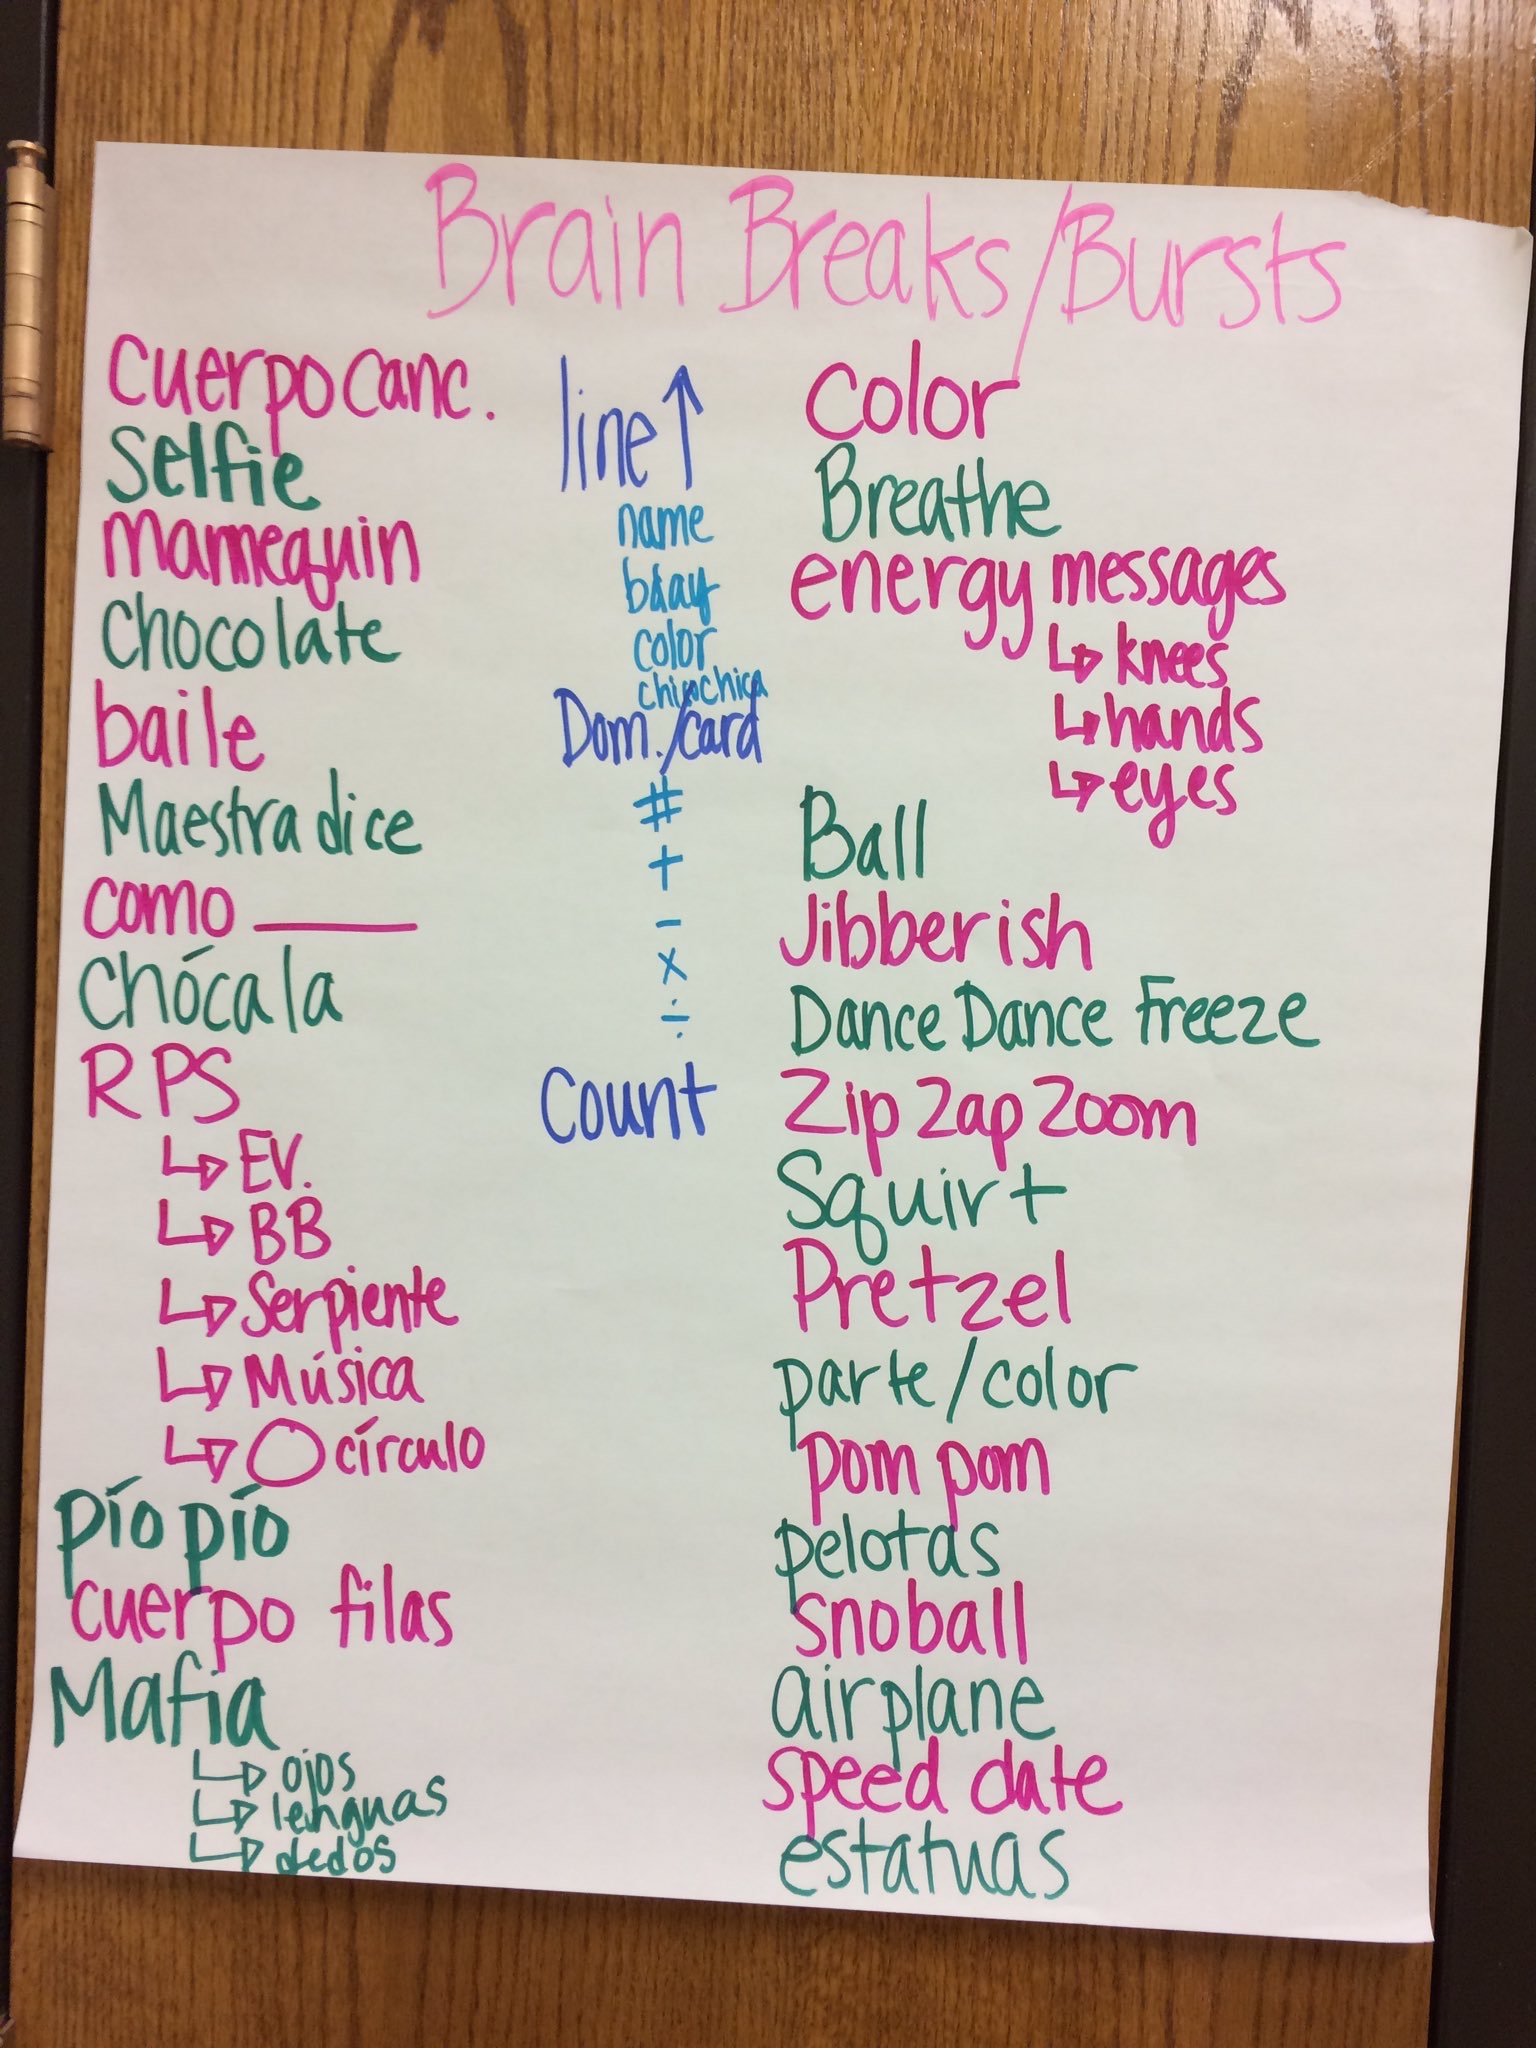 Brain Breaks/Bursts
cuerpo canc.
Selfie
mannequin
Chocolate
baile
Maestra dice
como ______
Chócala
RPS
↳ EV.
↳ BB
↳ Serpiente
↳ Música
↳ O círculo
pío pío
cuerpo filas
Mafia
↳ ojos
↳ lenguas
↳ dedos
line ↑
name
bday
color
chico chica
Dom./card
#
+
-
x
÷
Count
color
Breathe
energy messages
↳ knees
↳ hands
↳ eyes
Ball
Jibberish
Dance Dance Freeze
Zip Zap Zoom
Squirt
Pretzel
parte/color
pom pom
pelotas
snoball
airplane
speed date
estatuas